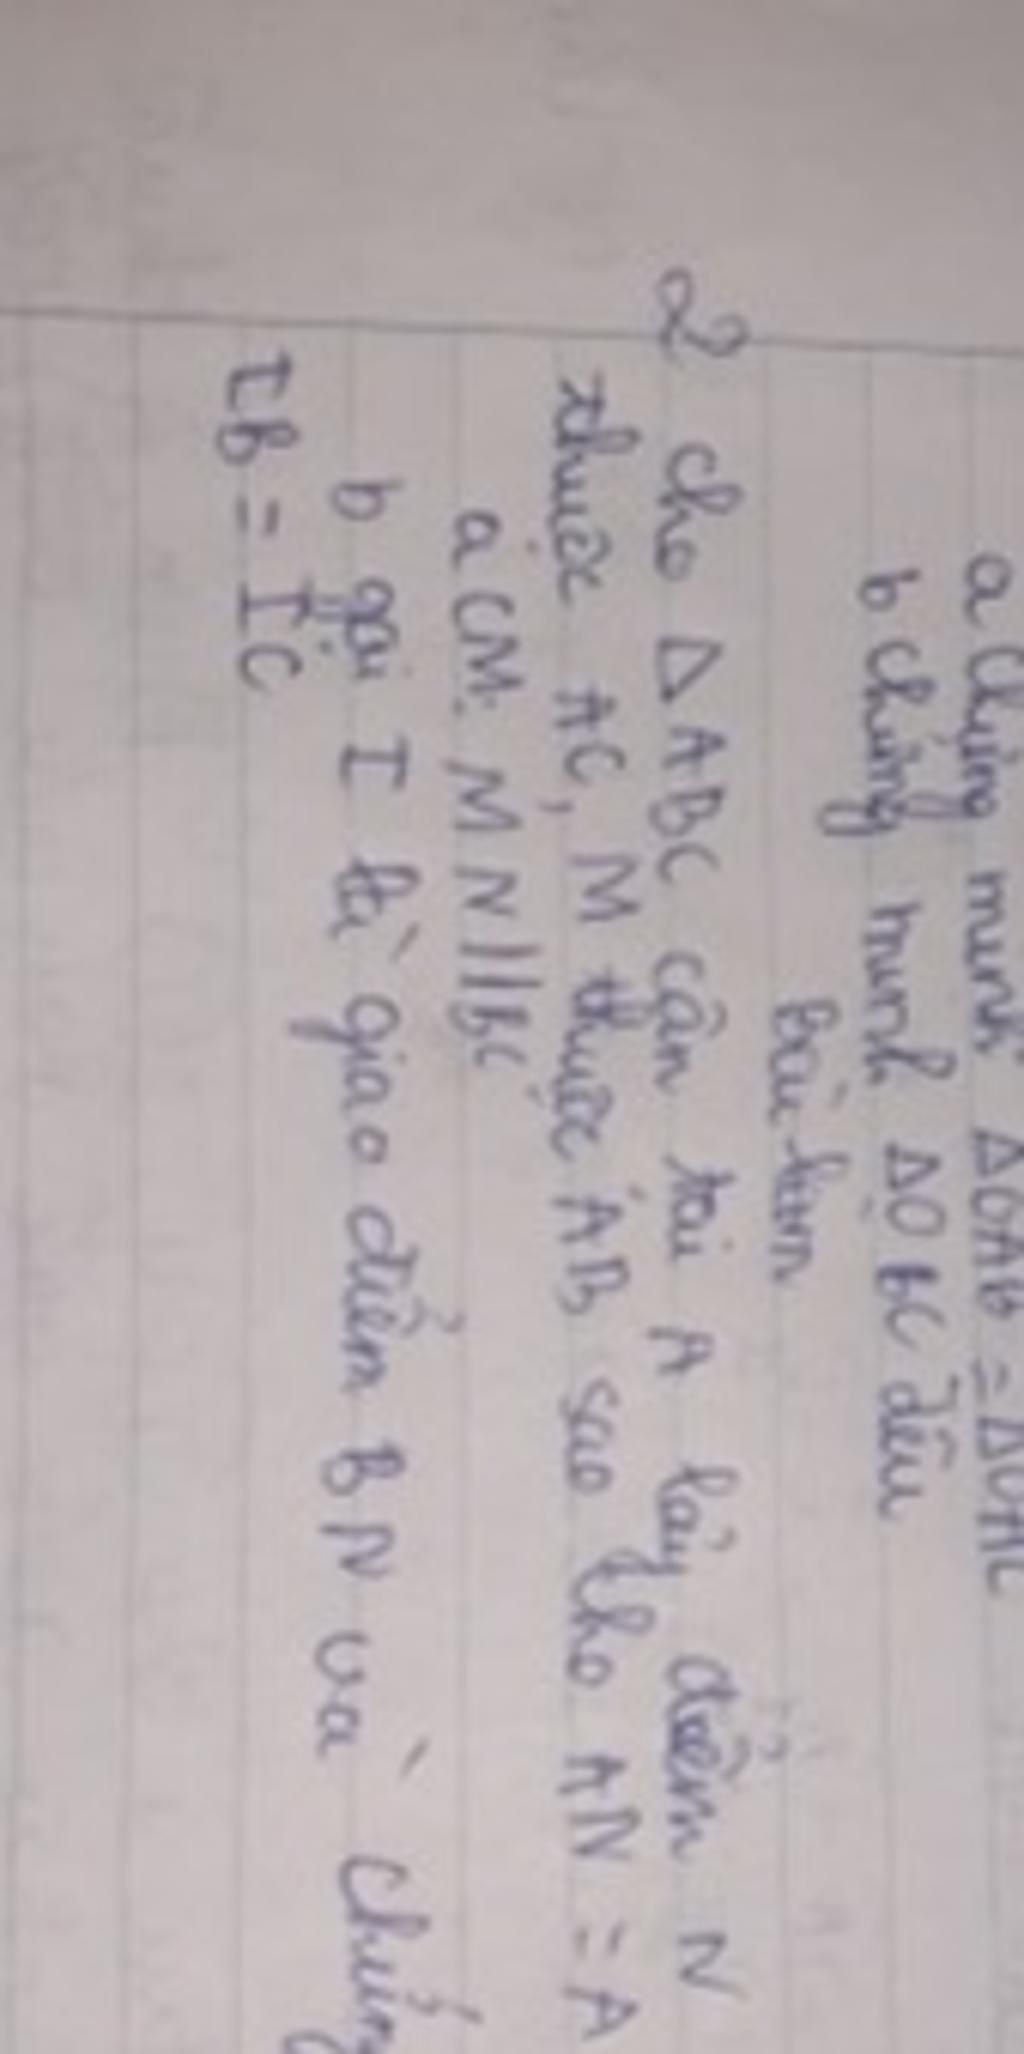 a Chứng minh ΔOAB = ΔOAC
b Chứng minh ΔOBC đều
Bài làm
2 cho ΔABC cân tại A lấy điểm N
thuộc AC, M thuộc AB sao cho AN = A
a CM: MN//BC
b gọi I là giao điểm BN và Chứng
IB = IC